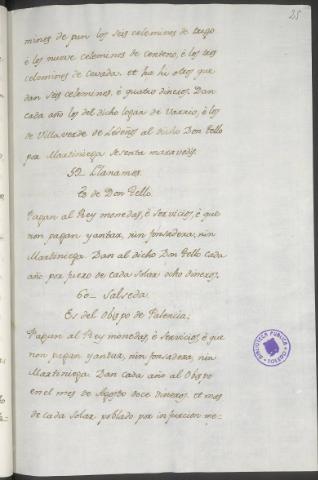 25
mines de pan los seis celemines de trigo
é los nueve celemines de Centeno, é los tres
celemines de Cevada. et ha hi otros que
dan seis celemines, é quatro dineros. Dan
cada año los del dicho logar de Varrio, é los
de Villaverde de Ledeños al dicho Don Tello
por Martiniega sesenta maravedis.
59_ Llanames.
Es de Don Tello.
Pagan al Rey monedas, é servicios, é que
non pagan yantar, nin fonsadera, nin
Martiniega. Dan al dicho Don Tello cada
año por fuero de cada solar ocho dineros.
60_ Salseda.
Es del Obispo de Palencia.
Pagan al Rey monedas, é Servicios, é que
non pagan yantar, nin fonsadera, nin
Martiniega. Dan cada año al Obispo
en el mes de Agosto doce dineros. et mas
de cada solar poblado por infurcion me-
BIBLIOTECA PUBLICA
TOLEDO